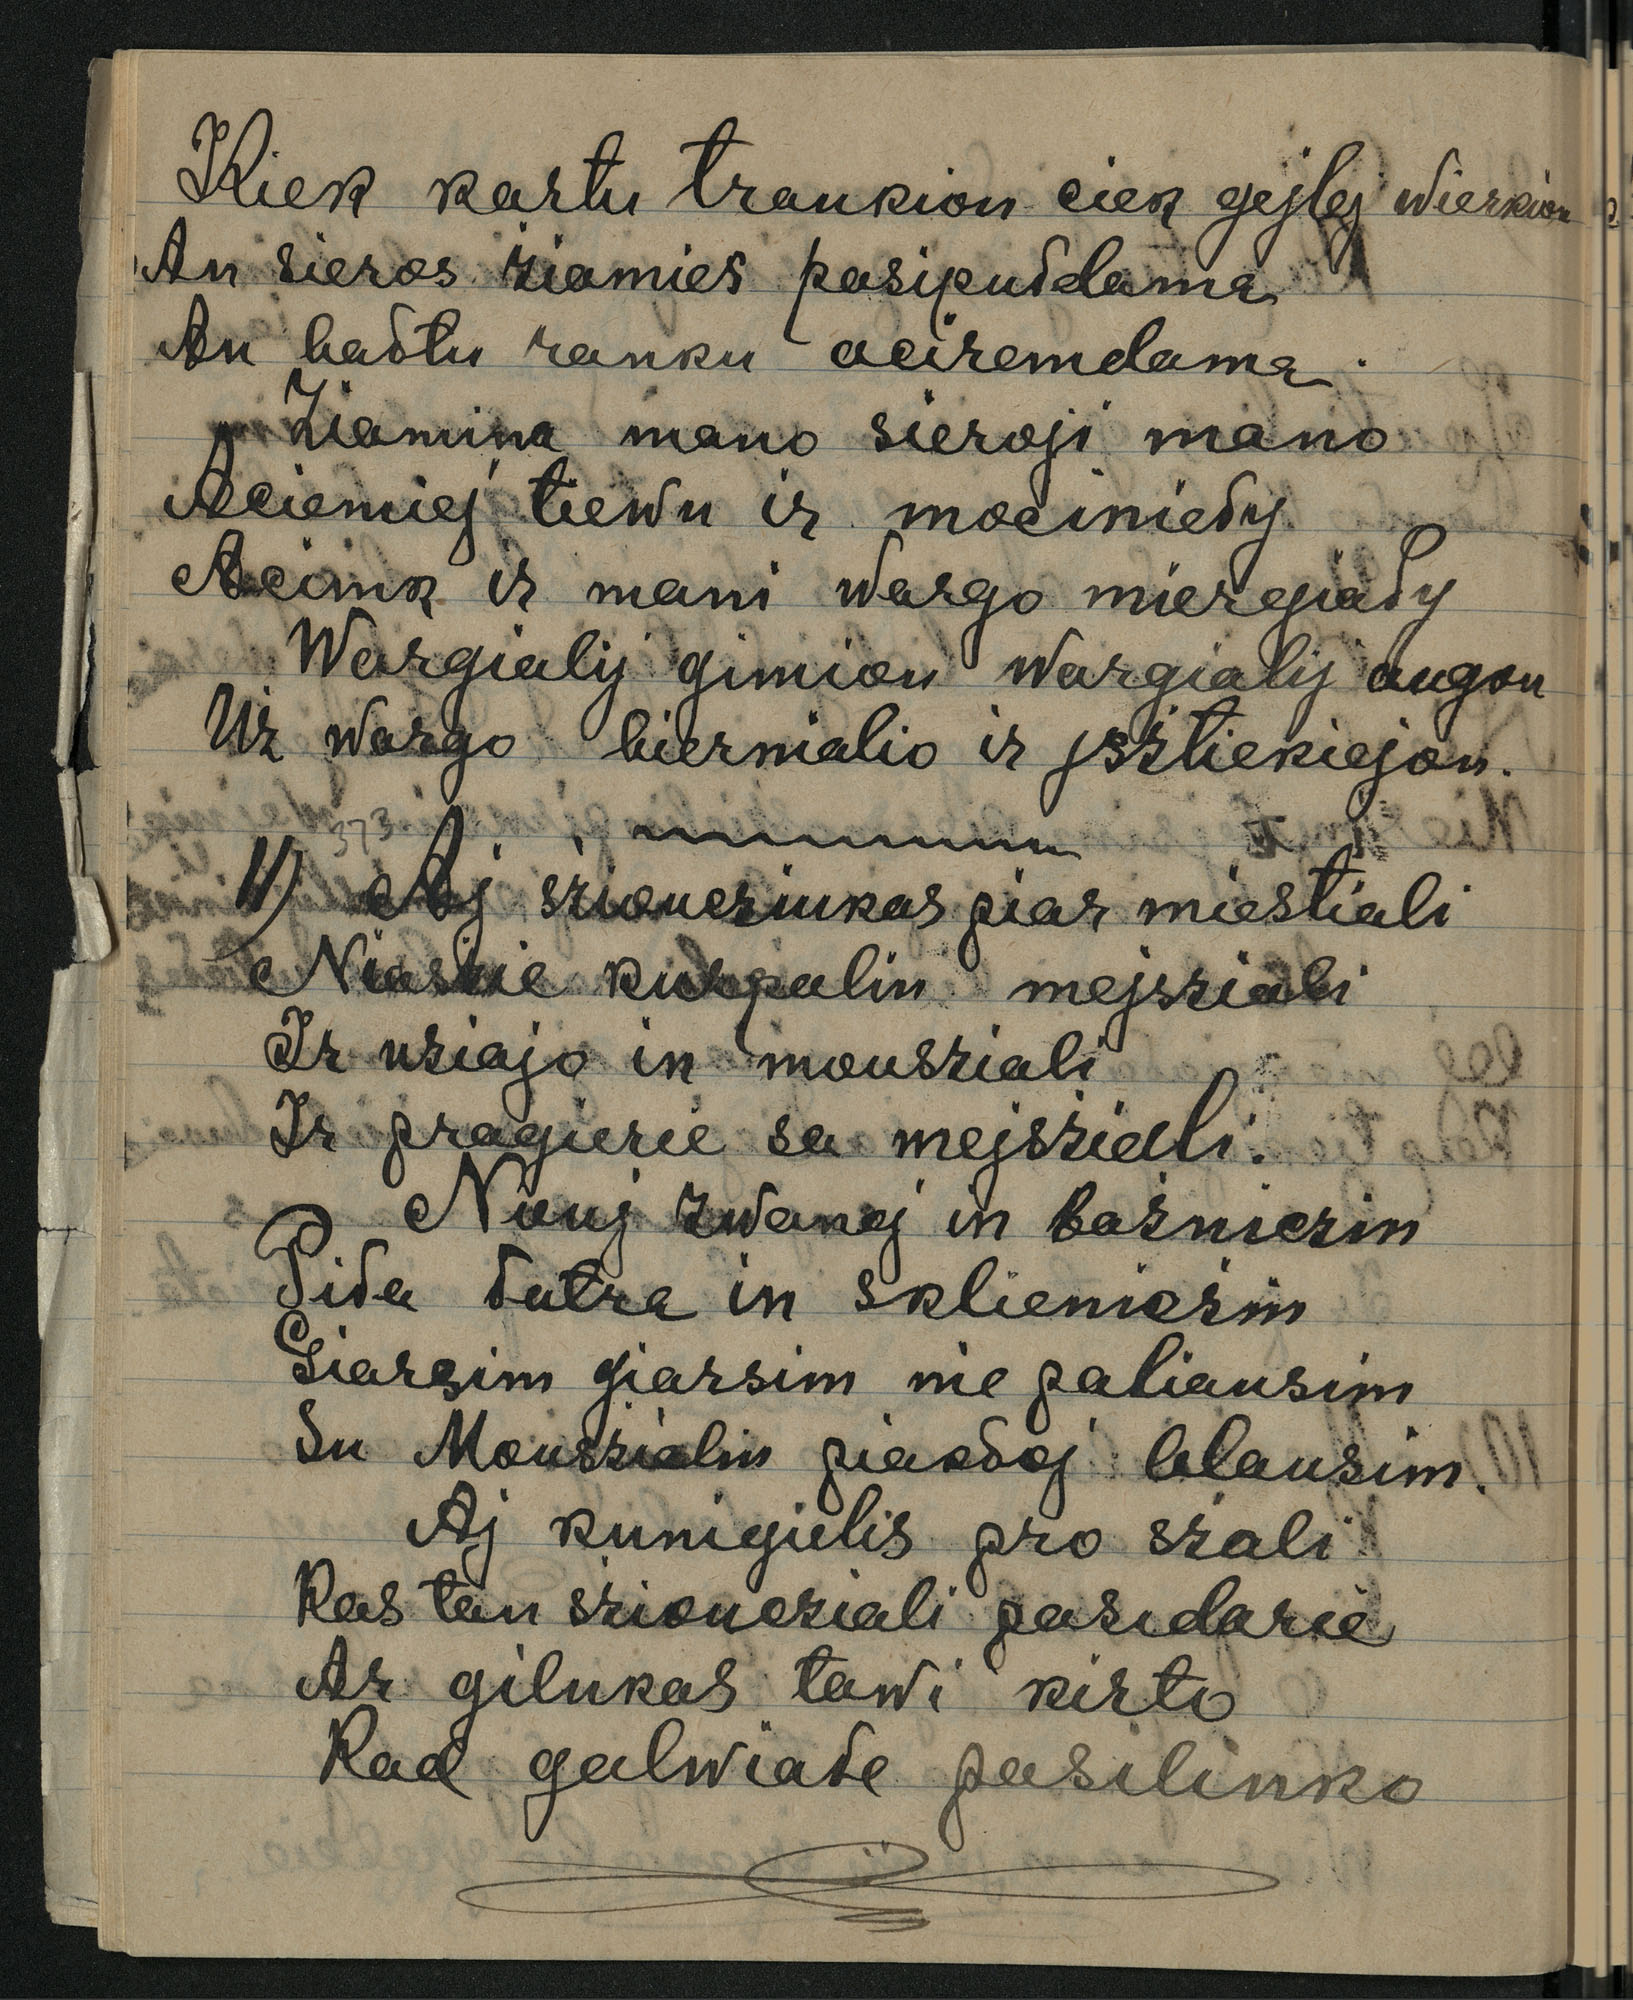 Kiek kartu traukiou ciek gejlej wierkiou
An sieros žiamies pasipuddama
An baltu ranku aciremdama.
Žiamina mano sieroji mano
Aciemiej tiewu ir mociniedy
Acimk ir mani wargo miergiady
Wargialij gimiou wargialij augou
Už wargo biernialio ir isztiekiejou.
373
11) Aj szioucziukas piar miestiali
Niaszie kurpalin mejsziali
Ir užiajo in mousziali
Ir pragierie sa mejsziali.
Niouj zwanaj in bažniczin
Pida dutra in sklieniczin
Giarsim giarsim nie paliausim
Su Mousziალin piaktoj blausim.
Aj kunigielis pro szali
Kas tau szioucziali pasidarie
Ar gilukas tawi kirto
Kad galwiade pasilinko